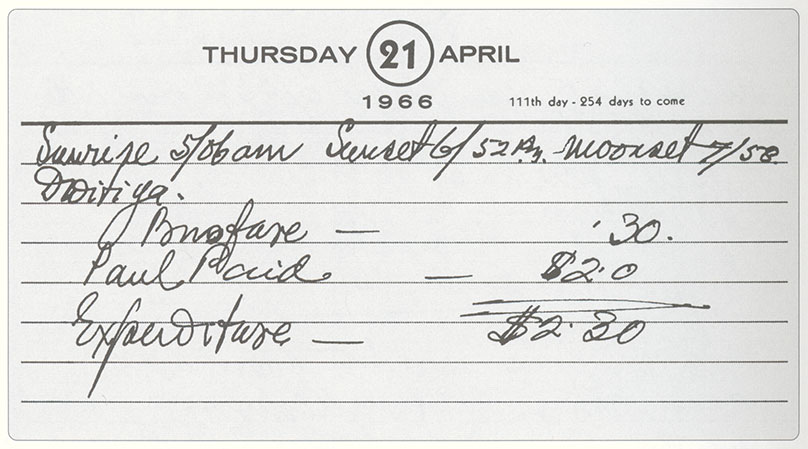 THURSDAY 21 APRIL
1966 111th day - 254 days to come
Sunrise 5/06 am Sunset 6/52 Pm. Moonset 7/58.
Dwitiya.
Busfare — .30.
Paul Paid — $2.0
Expenditure — $2.30